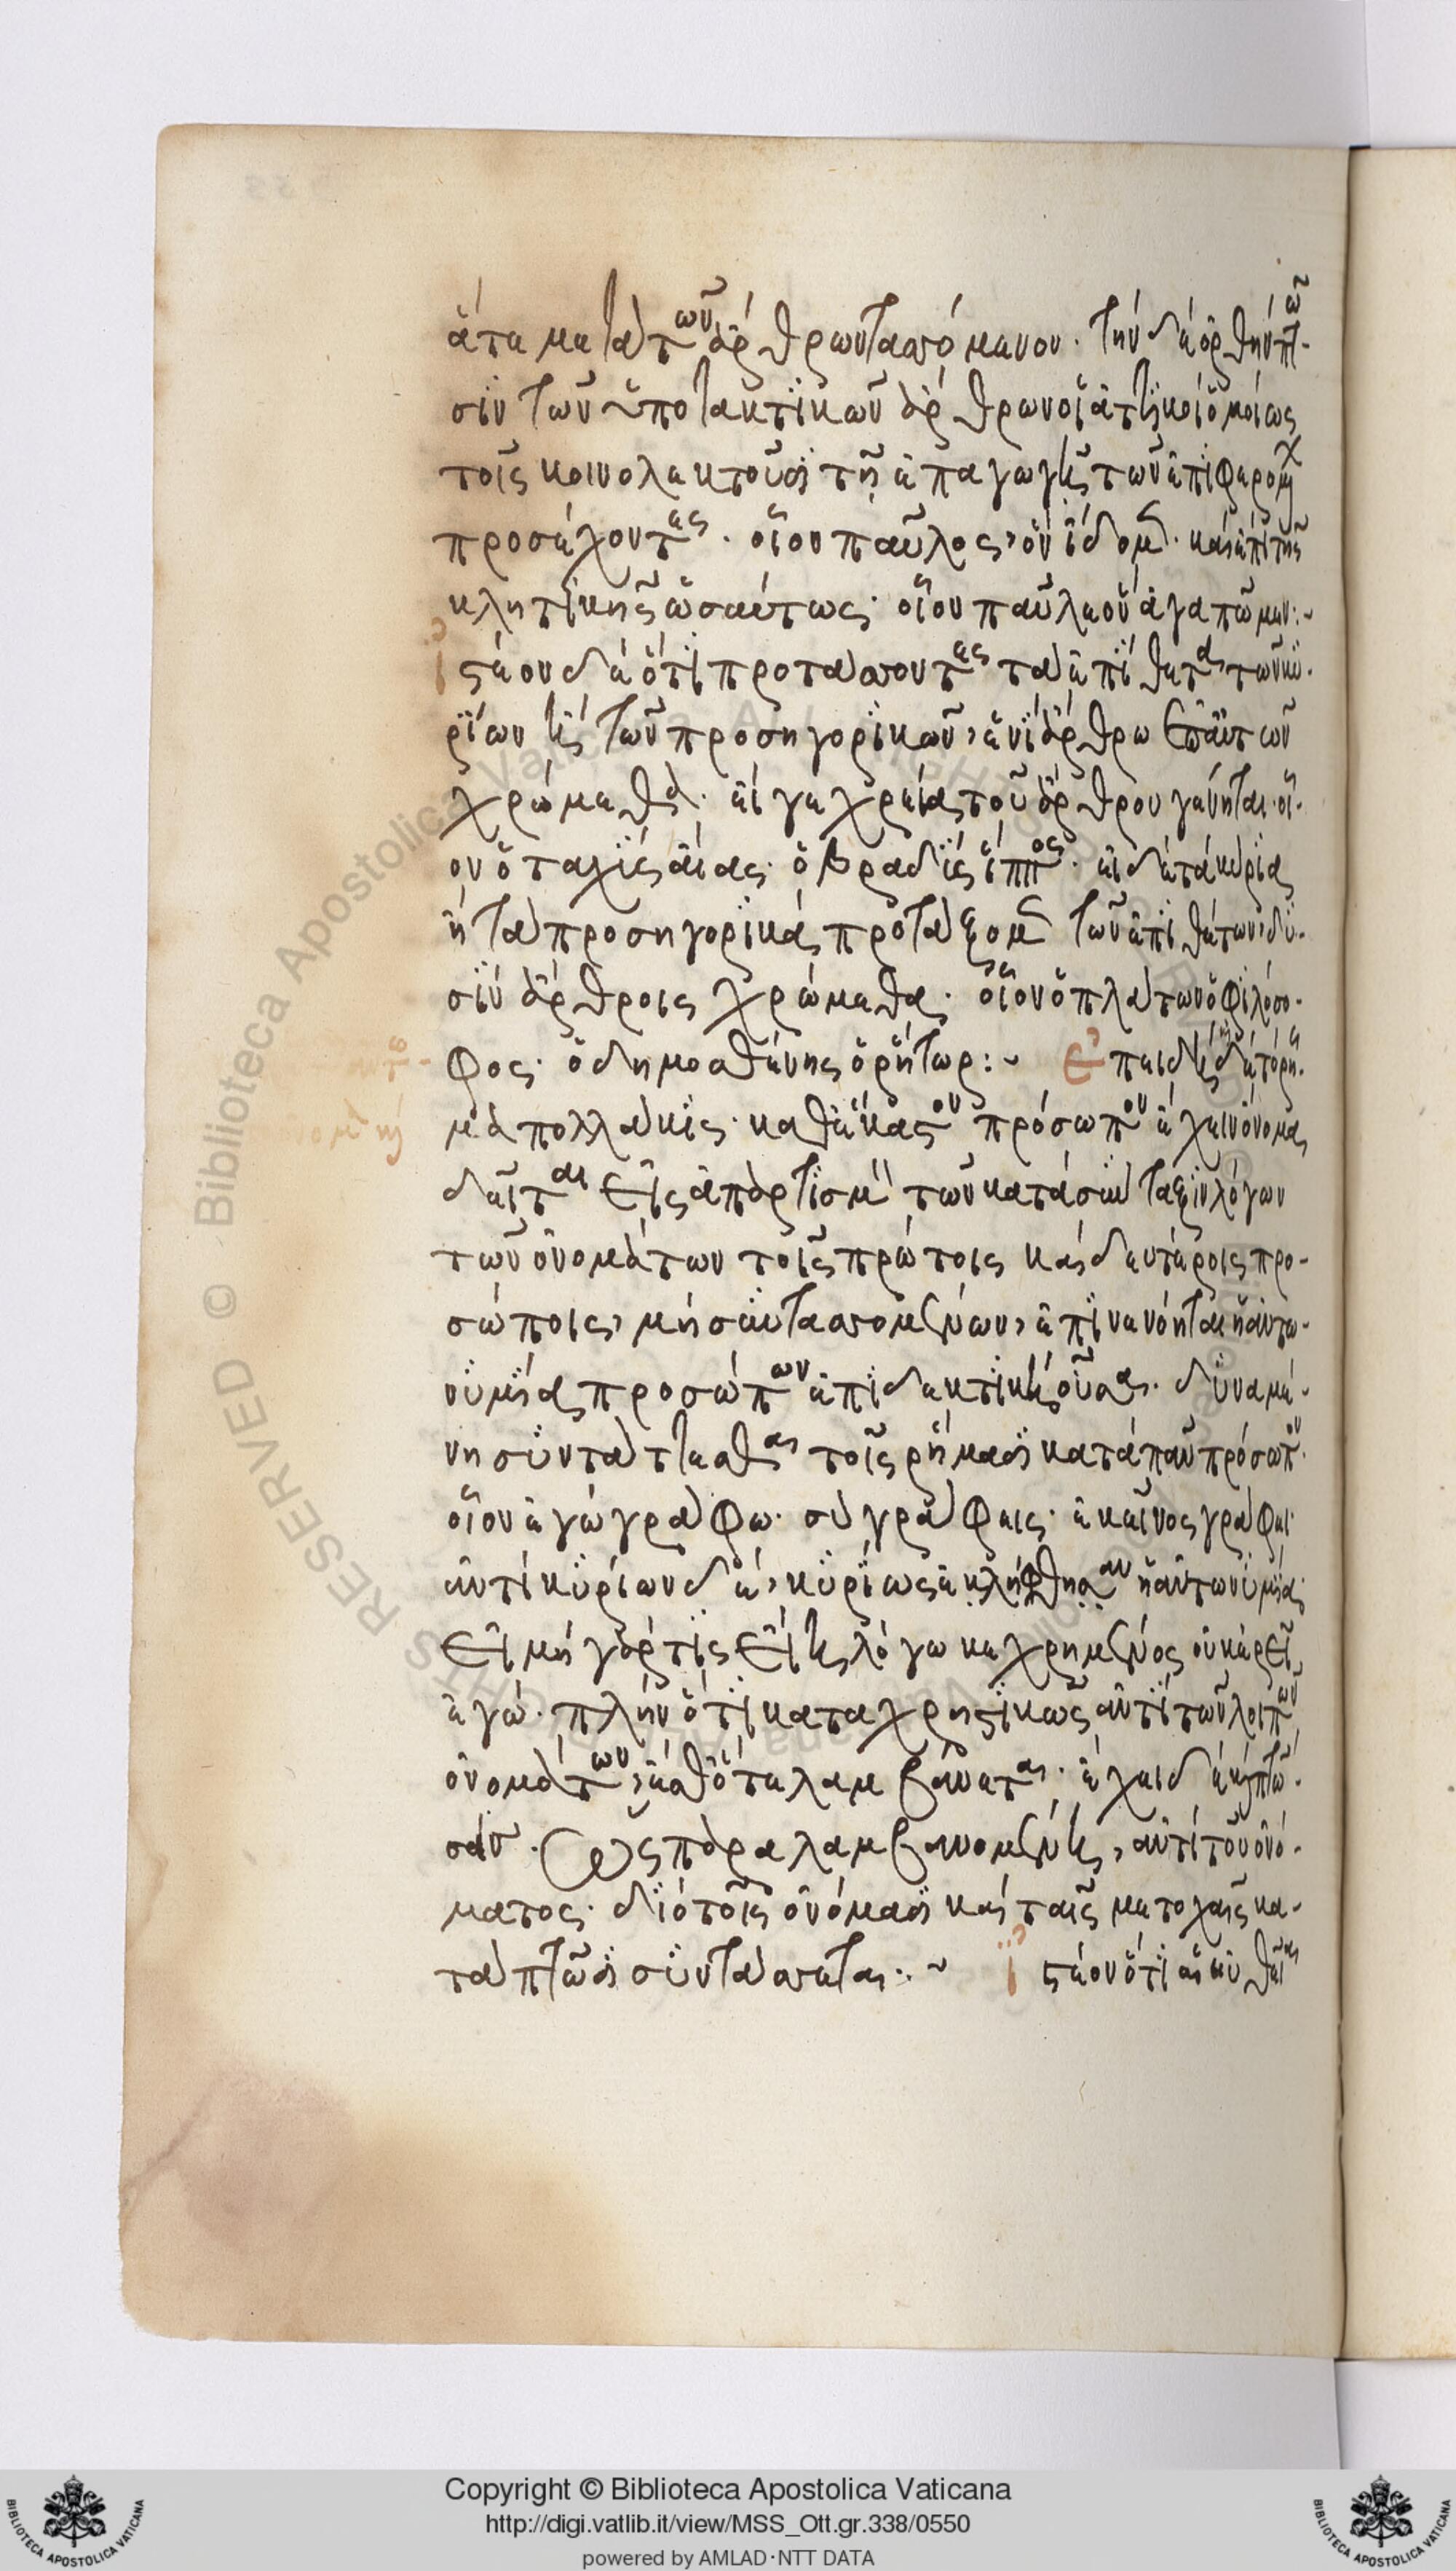 ἅτε μετὰ τῶν ἄρθρων τασσόμενον · τὴν δὲ ὀρθὴν πτῶ-
σιν τῶν ὑποτακτικῶν ἄρθρων οἱ ἀττικοὶ ὁμοίως
τοῖς κοινολεκτοῦσι τῆ ἐπαγωγῆ τῶν ἐπιφερομ
προσέχοντες · οἷον παῦλος, ὃν ἴδομεν · καὶ ἐπὶ τῆς
κλητικῆς ὡσαύτως · οἷον παῦλε οὗ ἀγαπῶμεν :~
ἰστέον δὲ ὅτι προτάσσοντες τὰ ἐπίθετα τῶν κυ-
ρίων ἢ τῶν προσηγορικῶν, ἑνὶ ἄρθρω ἐπ' αὐτῶν
χρώμεθα · εἴ γε χρεία τοῦ ἄρθρου γένηται · οἷ-
ον ὁ ταχὺς αἴας · ὁ βραδὺς ἵππος · εἰ δὲ τὰ κύρια
ἢ τὰ προσηγορικὰ προτάξομεν τῶν ἐπιθέτων, δυ-
σὶν ἄρθροις χρώμεθα · οἷον ὁ πλάτων ὁ φιλόσο-
φος · ὁ δημοσθένης ὁ ῥήτωρ :~ Ἐπειδὴ δὲ τὸ ῥῆ-
μα πολλάκις · καθ' ἕκαστον πρόσωπον ἔχειν ὄνομα
δεῖται εἰς ἀπαρτισμὸν τῶν κατὰ σύνταξιν λόγων
τῶν ὀνομάτων τοῖς πρώτοις καὶ δευτέροις προ-
σώποις, μὴ συντασσομένων, ἐπινενόηται ἡ ἀντω-
νυμία προσώπων ἐπιδεκτικὴ οὖσα · δυναμέ-
νη συντάττεσθαι τοῖς ῥήμασι κατὰ πᾶν πρόσωπον ·
οἷον ἐγὼ γράφω · σὺ γράφεις · ἐκεῖνος γράφει ·
ἀντὶ κυρίων δὲ, κυρίως ἐκλήφθησαν ἡ ἀντωνυμία ·
εἰ μὴ γάρ τις εἴη λόγω κεχρημένος οὐκ ἐρεῖ
ἐγώ · πλὴν ὅτι καταχρηστικῶς ἀντὶ τῶν λοιπῶν
ὀνομάτων, ἔσθ' ὅτε λαμβάνεται · ἔχει δὲ καὶ πτῶ-
σιν · ὡς παραλαμβανομένη, ἀντὶ τοῦ ὀνό-
ματος · διὸ τοῖς ὀνόμασι καὶ ταῖς μετοχαῖς κα-
τὰ πτῶσι συντάσσεται :~ ἰστέον ὅτι αἱ εὐθεῖαι
Copyright © Biblioteca Apostolica Vaticana
http://digi.vatlib.it/view/MSS_Ott.gr.338/0550
powered by AMLAD·NTT DATA